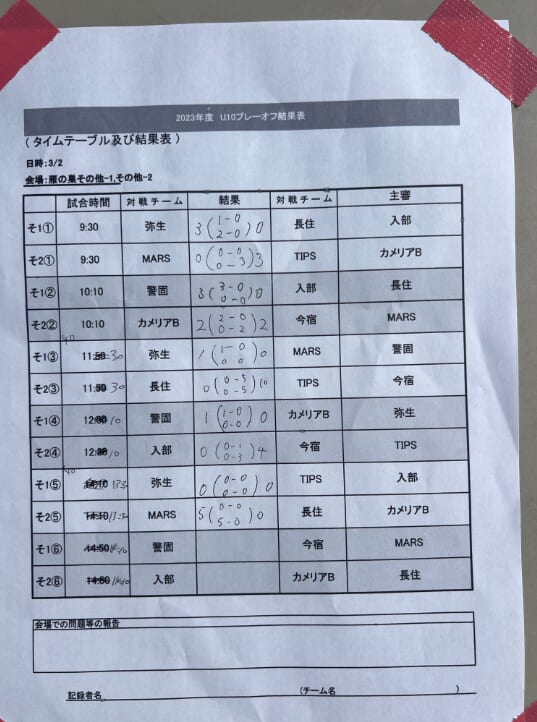 2023年度 U10プレーオフ結果表
(タイムテーブル及び結果表)
日時:3/2
会場:雁の巣その他-1,その他-2
試合時間 対戦チーム 結果 対戦チーム 主審
そ1① 9:30 弥生 3(1-0 2-0)0 長住 入部
そ2① 9:30 MARS 0(0-0 0-3)3 TIPS カメリアB
そ1② 10:10 警固 3(3-0 0-0)0 入部 長住
そ2② 10:10 カメリアB 2(2-0 0-2)2 今宿 MARS
そ1③ 11:30 弥生 1(1-0 0-0)0 MARS 警固
そ2③ 11:30 長住 0(0-5 0-5)10 TIPS 今宿
そ1④ 12:10 警固 1(1-0 0-0)0 カメリアB 弥生
そ2④ 12:10 入部 0(0-1 0-3)4 今宿 TIPS
そ1⑤ 弥生 0(0-0 0-0)0 TIPS 入部
そ2⑤ 14:10 MARS 5(0-0 5-0)0 長住 カメリアB
そ1⑥ 14:50 警固 今宿 MARS
そ2⑥ 14:50 入部 カメリアB 長住
会場での問題等の報告
記録者名 (チーム名 )